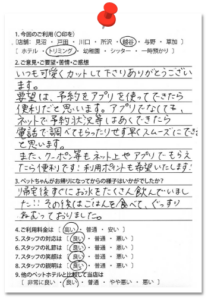 1. 今回のご利用(○印を)
(店舗: 見沼 ・ 戸田 ・ 川口 ・ 所沢 ・ 越谷 ・ 与野 ・ 草加 )
( ホテル ・ トリミング ・ 幼稚園 ・ シッター ・ 一時預かり )
2. ご意見・ご要望・苦情・ご感想
いつも可愛くカットして下さりありがとうござい
ます。
要望は、予約をアプリを使ってできたら
便利だと思います。アプリでなくても、
ネットで予約状況等はあくできたら
電話で調べてもらったりせず早くスムーズにできる
と思います。
また、クーポン等もネット上やアプリでもらえ
たら便利です!利用ポイントも希望いたします!
3. ペットちゃんがお帰りになってからの様子はいかがでしたか?
帰宅後すぐにお水をたくさん飲んでいまし
た!!その後はごはんも食べて、ぐっすり
ねむっておりました。
4. ご利用料金は ( 高い ・ 普通 ・ 安い )
5. スタッフの対応は ( 良い ・ 普通 ・ 悪い )
6. スタッフの
7. スタッフの
8. スタッフの
9. 他のペットホテルと比較して当店は